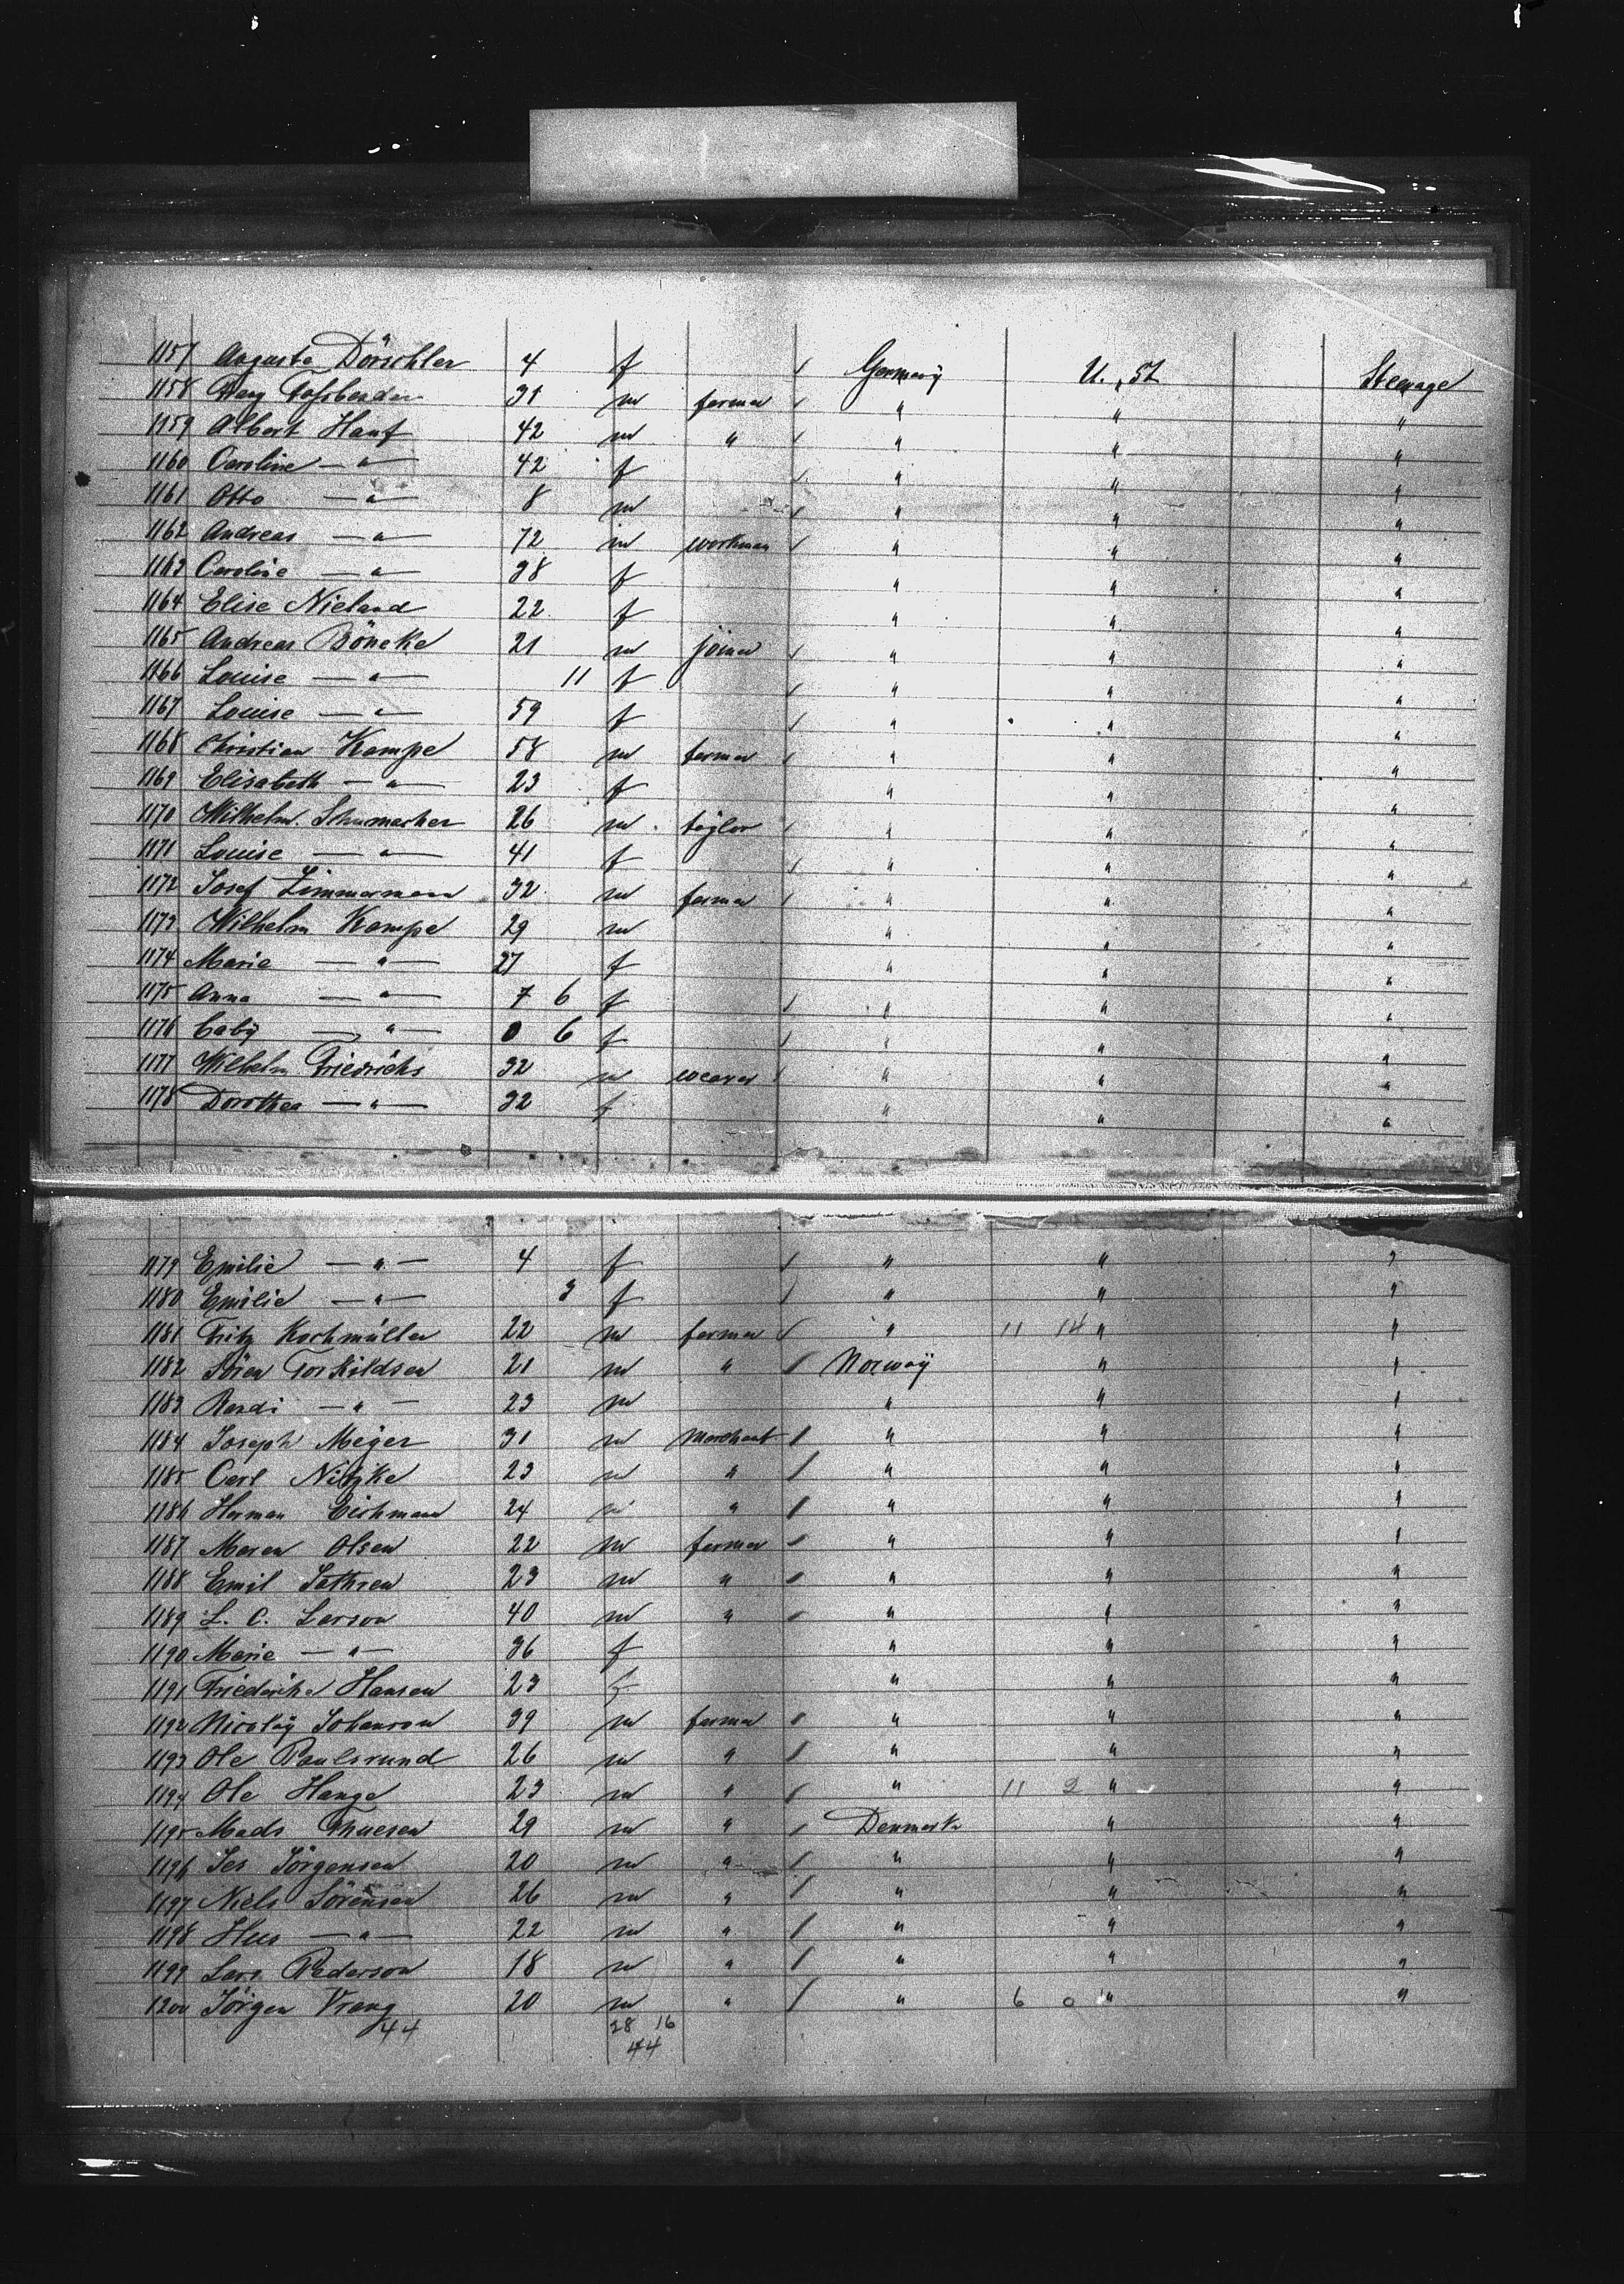 1157 Auguste Dörschler 4 f Germany U. St. Steerage
1158 31 m farmer " " "
1159 Albert Hanf 42 m " " " "
1160 Caroline — " — 42 f " " "
1161 Otto — " — 8 m " " "
1162 Andreas — " — 72 m workman " " "
1163 Caroline — " — 38 f " " "
1164 Elise Nieland 22 f " " "
1165 Andreas Böneke 21 m joiner " " "
1166 Louise — " — 11 f " " "
1167 Louise — " — 59 f " " "
1168 Christian Kampe 58 m farmer " " "
1169 Elisabeth — " — 23 f " " "
1170 Wilhelm Schumacher 26 m taylor " " "
1171 Louise — " — 41 f " " "
1172 Josef Zimmermann 32 m farmer " " "
1173 Wilhelm Kampe 29 m " " "
1174 Marie — " — 27 f " " "
1175 Anna — " — 7 6 f " " "
1176 baby — " — 0 6 f " " "
1177 Wilhelm Friedrichs 32 m weaver " " "
1178 Dorothea — " — 32 f " " "
1179 Emilie — " — 4 f " " "
1180 Emilie — " — 3 f " " "
1181 Fritz Kochmüller 22 m farmer " 11 14 " "
1182 Sören Torkildsen 21 m " Norway " "
1183 Randi — " — 23 m " " "
1184 Joseph Meÿer 31 m merchant " " "
1185 Carl Nitzke 23 m " " " "
1186 Herman Eichmann 24 m " " " "
1187 Maren Olsen 22 m farmer " " "
1188 Emil Sathren 23 m " " " "
1189 L. C. Larson 40 m " " " "
1190 Marie — " — 36 f " " "
1191 Friederike Hansen 23 f " " "
1192 Nicolaÿ Johanson 39 m farmer " " "
1193 Ole Paulsrund 26 m " " " "
1194 Ole Hange 23 m " " 11 2 " "
1195 Mads Thuesen 29 m " Denmark " "
1196 Jes Jörgensen 20 m " " " "
1197 Niels Sörensen 26 m " " " "
1198 — " — 22 m " " " "
1199 Lars Pederson 18 m " " " "
1200 Jörgen Vrang 20 m " " 6 0 " "
44 28 16
44